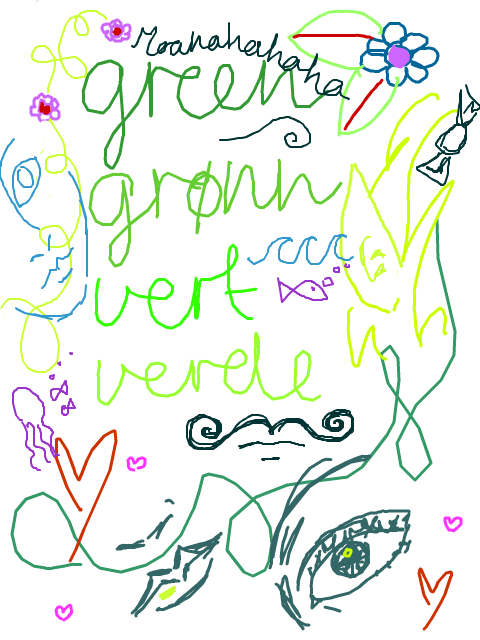 Moahahahaha
green
grønn
vert
verde